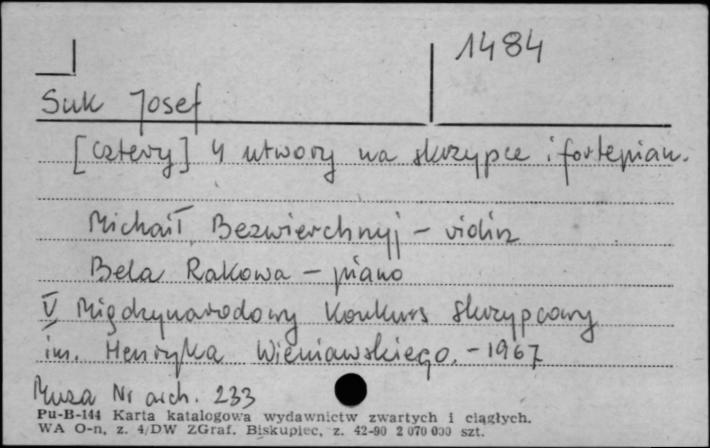 1484
Suk Josef
[cztery] 4 utwory na skrzypce i fortepian.
Michaił Bezwierchnyj – violin
Bela Rakowa – piano
V Międzynarodowy Konkurs Skrzypcowy
im. Henryka Wieniawskiego. – 1967
Muza Nr arch. 233
Pu-B-144 Karta katalogowa wydawnictw zwartych i ciągłych.
WA O-n, z. 4/DW ZGraf. Biskupiec, z. 42-90 2 070 000 szt.